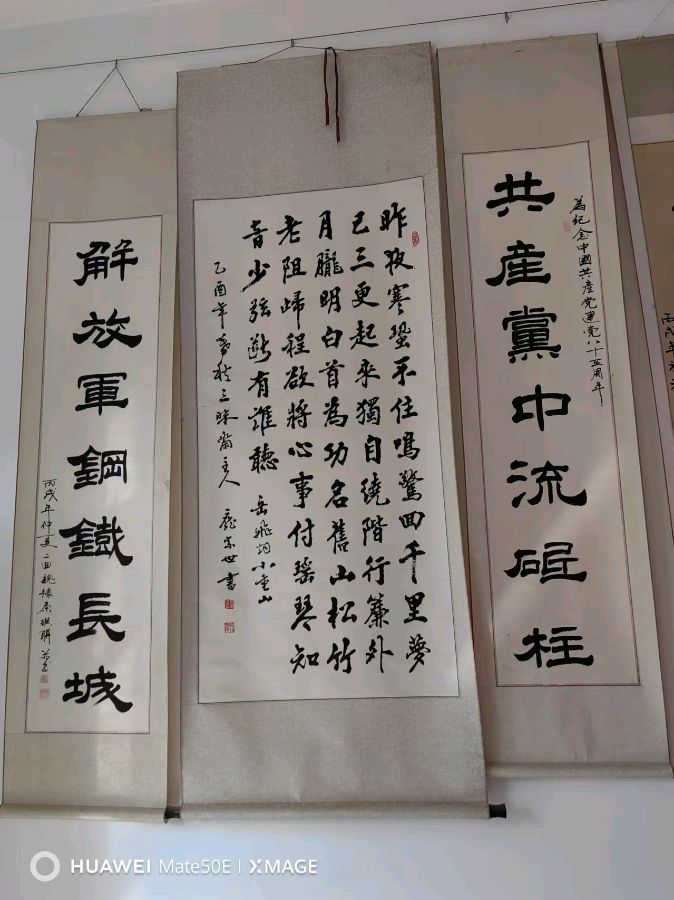 為紀念中國共産党建党八十五周年
共産黨中流砥柱
昨夜寒蛩不住鳴驚回千里夢
已三更起來獨自繞階行簾外
月朧明白首為功名舊山松竹
老阻歸程欲將心事付瑤琴知
音少弦断有誰聽 岳飛詞小重山
乙酉年 三昧齋主人 書
解放軍鋼鐵長城
丙戌年仲夏二曲
丙戌年
HUAWEI Mate50E | XMAGE